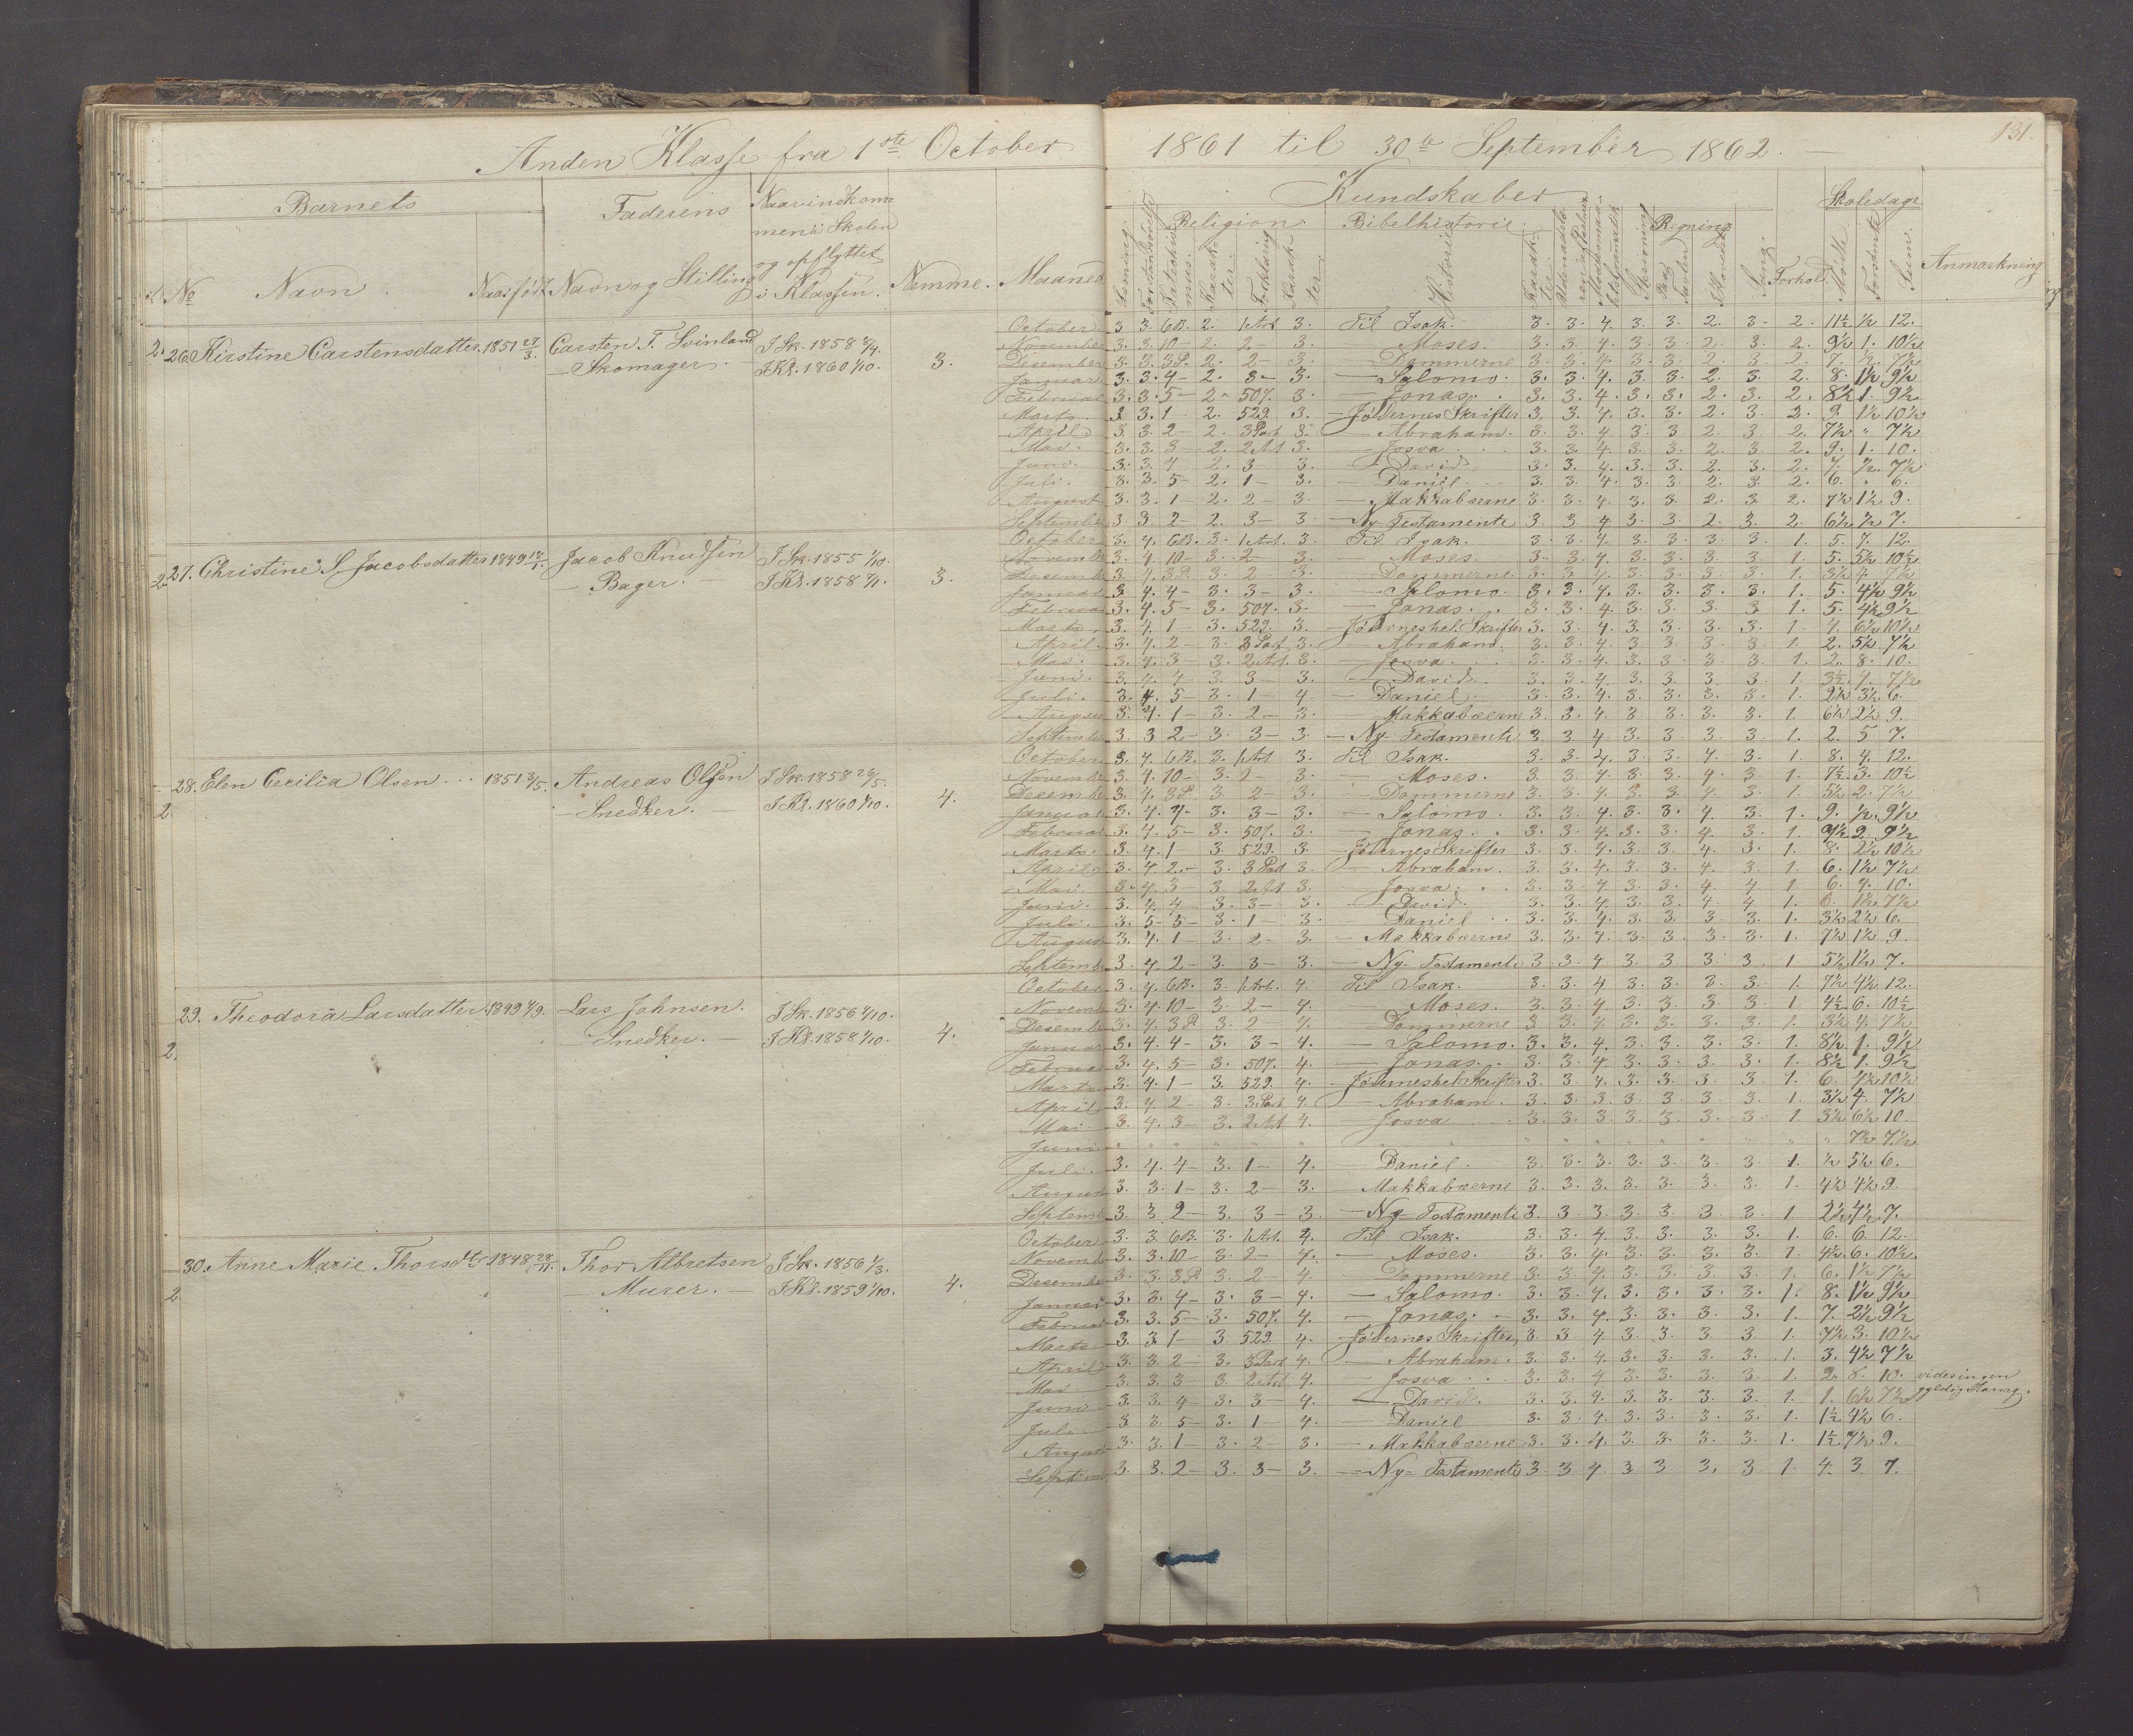 Anden Klasse fra 1ste October 1861 til 30te September 1862.
131.
Barnets Faderens Naar indkommen i Skolen og opflyttet i Klassen. Nemme. Maaned
№ Navn. Naar født Navn og Stilling
Kundskaber Skoledage
Religion Bibelhistorie Regning
Læsning. Forklaring Karakter. Historie Karakter. Skrivning Paa Tavlen I Hovedet Sang. Forhold. Mødt. Forsømte Sum. Anmærkning
2. 26. Kirstine Carstensdatter. 1851 27/3. Carsten T. Svinland I Sk. 1858
— Skomager. I Kl. 1860 1/10. 3.
October. 3 3. 6B. 2. 1 Art 3. Til Isak. 3. 3. 4. 3. 3. 2. 3. 2. 11½ ½ 12.
November 3. 3. 10 – 2. 2 – 3. — Moses. 3. 3. 4. 3. 3. 2. 3. 2. 9½ 1. 10½
December 3. 3. 3P. 2. 2 – 3. — Dommerne 3. 3. 4. 3. 3. 2. 3. 2. 7. ½ 7½
Januar 3. 3. 4 – 2. 3 – 3. — Salomo. 3. 3. 4. 3. 3. 2. 3. 2. 8. 1½ 9½
Februar 3. 3. 5 – 2. 507. 3. — Jonas. 3. 3. 4. 3. 3. 2. 3. 2. 8½ 1. 9½
Marts. 3 3. 1 – 2. 529. 3. — Jødernes Skrifter 3. 3. 4. 3. 3. 2. 3. 2. 9. 1½ 10½
April 3. 3. 2 – 2. 3 Part 3. — Abraham. 3. 3. 4. 3. 3. 2. 3. 2. 7½ " 7½
Mai. 3. 3. 3 – 2. 2 Art 3. — Josva 3. 3. 4. 3. 3. 2. 3. 2. 9. 1. 10.
Juni. 3. 3. 4 2. 3 – 3. — David 3. 3. 4. 3. 3. 2. 3. 2. 7. ½ 7½
Juli. 3. 3. 5 – 2. 1 – 3. — Daniel 3. 3. 4. 3. 3. 2. 3. 2. 6. " 6.
August 3. 3. 1 – 2. 2 – 3. — Makkabæerne 3. 3. 4. 3. 3. 2. 3. 2. 7½ 1½ 9.
September 3. 3. 2 – 2. 3 – 3. — Ny-Testamente 3. 3. 4 3. 3. 2. 3. 2. 6½ ½ 7.
2 27. Christine S. Jacobsdatter 1849 Jacob Knudsen I Sk. 1855 1/10.
— Bager. — I Kl. 1858 3.
October 3. 4. 6B. 3. 1 Art. 3. Til Isak. 3. 3. 4. 3. 3. 3. 3. 1. 5. 7. 12.
November 3. 4 10 – 3. 2 – 3. — Moses. 3. 3. 4. 3. 3. 3. 3. 1. 5. 5½ 10½
December 3. 4. 3P. 3. 2 3. — Dommerne. 3. 3. 4. 3. 3. 3. 3. 1. 3½ 4. 7½
Januar 3 4. 4 – 3. 3 – 3. — Salomo. 3. 3. 4. 3. 3. 3. 3. 1. 5. 4½ 9½
Februar 3. 4. 5 – 3. 507. 3. — Jonas. 3. 3. 4. 3. 3. 3. 3. 1. 5. 4½ 9½
Marts. 3. 4. 1 – 3. 529. 3. — Jødernes hel. Skrifter 3. 3. 4. 3. 3. 3. 3. 1. 4. 6½ 10½
April. 3. 4. 2 – 3. 3 Part 3. — Abraham. 3. 3. 4. 3. 3. 3. 3. 1. 2. 5½ 7½
Mai. 3. 4. 3 – 3. 2 Art. 3. — Josva. 3. 3. 4. 3. 3. 3. 3. 1. 2. 8. 10.
Juni. 3. 4. 4 – 3. 3 – 3. — David. 3. 3. 4. 3. 3. 3. 3. 1. 3½. 4. 7½
Juli. 3. 4. 5 – 3. 1 – 4. — Daniel. 3. 3. 4. 3. 3. 3. 3. 1. 2½ 3½ 6.
August 3. 4. 1 – 3. 2 – 3. — Makkabæerne 3. 3. 4. 3 3. 3. 3. 1. 6½ 2½ 9.
September 3. 3 2 – 3. 3 – 3. — Ny-Testamente 3 3 4 3 3 3 3 1. 2. 5 7.
2 28. Elen Cecilia Olsen. 1851 Andreas Olsen I Sk. 1858 26/5.
— Snedker. — I Kl. 1860 1/10. 4.
October 3. 4. 6B. 3. 1 Art 3. Til Isak. 3. 3. 4. 3. 3. 4. 3. 1. 8. 4. 12.
November 3. 4. 10 – 3. 2 – 3. — Moses. 3. 3. 4. 3. 3. 4. 3. 1. 7½. 3. 10½
December 3. 4. 3P. 3. 2 – 3. — Dommerne 3. 3. 4. 3. 3. 4. 3. 1. 5½ 2. 7½
Januar 3. 4. 4. 3. 3 – 3. — Salomo. 3. 3. 4. 3. 3. 4. 3. 1. 9. ½ 9½
Februar 3. 4. 5 – 3. 507. 3. — Jonas. 3. 3. 4. 3. 3. 4. 3. 1. 7½ 2 9½
Marts. 3. 4. 1 – 3. 529. 3. — Jødernes Skrifter 3. 3. 4. 3. 3. 4. 3. 1. 8. 2½ 10½
April 3. 4. 2 – 3. 3 Part 3. — Abraham. 3. 3. 4. 3. 3. 4. 3. 1. 6. 1½ 7½
Mai. 3. 4. 3 – 3. 2 Art 3. — Josva. 3. 3. 4. 3. 3. 4. 4. 1. 6. 4. 10.
Juni. 3. 4. 4 – 3. 3 – 3. — David. 3. 3. 4. 3. 3. 4. 4. 1. 6. 1½ 7½
Juli. 3. 5 – 5 – 3. 1 – 3. — Daniel 3. 3. 4. 3. 3. 3. 3. 1. 3½ 2½ 6.
August 3. 4. 1 – 3. 2 – 3. — Makkabæerne 3. 3. 4. 3. 3. 3. 3. 1. 7½ 1½ 9.
September 3. 4. 2 – 3. 3 – 3. — Ny-Testamente 3 3. 4 3. 3 3 3 1. 5½ 1½ 7.
2. 29. Theodora Larsdatter. 1849 Lars Johnsen. I Sk. 1856 1/10.
— Snedker. — I Kl. 1858 1/10. 4.
October 3. 4. 6B. 3. 1 Art. 4. Til Isak. 3. 3 4 3. 3. 3. 3. 1. 7½ 4½ 12.
November 3. 4. 10 – 3. 2 – 4. — Moses. 3. 3. 4. 3. 3. 3. 3. 1. 4½ 6. 10½
December 3. 4. 3P 3. 2 4. — Dommerne 3 3 4. 3. 3. 3. 3. 1. 3½ 4. 7½
Januar 3. 4. 4 – 3. 3 – 4. — Salomo. 3. 3. 4. 3. 3. 3. 3. 1. 8½ 1. 9½
Februar 3. 4. 5 – 3. 507. 4. — Jonas. 3. 3. 4. 3. 3. 3. 3. 1. 8½ 1. 9½
Marts 3. 4. 1 – 3. 529. 4. — Jødernes hel. Skrifter 3. 3. 4. 3. 3. 3. 3 1. 6. 4½ 10½
April 3. 4. 2 – 3. 3. Part 4. — Abraham. 3. 3. 3. 3. 3. 3. 3. 1. 3½ 4. 7½
Mai. 3. 4. 3 – 3. 2 Art 4. — Josva 3. 3. 3. 3. 3. 3. 3. 1. 3½ 6½ 10.
Juni " " " " " " " " " " " " " " " 7½ 7½
Juli. 3. 4. 4 – 3. 1 – 4. Daniel. 3. 3. 3. 3. 3. 3. 3. 1. ½ 5½ 6.
August 3. 3. 1 – 3. 2 – 3. — Makkabæerne 3. 3. 3. 3. 3. 3. 3. 1. 4½ 4½ 9.
September 3. 3 2 – 3. 3 – 3. — Ny-Testamente 3. 3. 3. 3. 3. 3. 3. 1. 2½ 4½ 7.
2. 30. Anne Marie Thorsdtr 1848 28/11. Thor Albretsen I Sk. 1856 1/3.
— Murer. — I Kl. 1859 1/10. 4.
October 3. 3. 6B. 3. 1 Art. 4. Til Isak. 3. 3. 4. 3. 3. 3. 3. 1. 6. 6. 12.
November 3. 3. 10 – 3. 2 – 4. — Moses. 3. 3. 4. 3. 3. 3. 3. 1. 4½ 6. 10½
December 3. 3. 3P. 3. 2 – 4. Dommerne 3. 3. 4. 3. 3. 3. 3. 1. 6. 1½ 7½
Januar 3. 3. 4 – 3. 3 – 4. — Salomo. 3. 3. 4. 3. 3. 3. 3. 1. 8. 1½ 9½
Februar 3. 3. 5 – 3. 507. 4. — Jonas. 3. 3. 4. 3. 3. 3. 3. 1. 7. 2½ 9½
Marts 3. 3. 1 – 3. 529. 4. — Jødernes Skrifter 3. 3. 4. 3. 3. 3. 3. 1. 7½ 3. 10½
April 3. 3. 2 – 3. 3 Part 4. — Abraham. 3. 3. 4. 3. 3. 3. 3. 1. 3. 4½ 7½
Mai 3. 3. 3 – 3. 2 Art 4. — Josva 3. 3. 4 3. 3. 3. 3. 1. 2. 8. 10. vides ingen
Juni 3. 3. 4 – 3. 3 – 4. — David. 3. 3. 4. 3. 3. 3. 3. 1. 1. 6½ 7½ gyldig Aarsag.
Juli 3 3. 5 – 3. 1 – 4. — Daniel 3. 3 4. 3. 3. 3. 3. 1. 1½ 4½ 6.
August 3. 3. 1 – 3. 2 – 3. — Makkabæerne 3. 3. 4. 3. 3. 3. 3. 1. 1½ 7½ 9.
September 3. 3. 2 – 3. 3 – 3. — Ny-Testamente 3. 3 4 3 3 3. 3 1. 4. 3. 7.